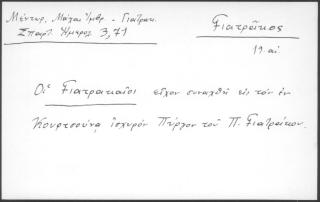 Μέντωρ, Μάχαι Ἰμβρ. - Γιατρακ.
Σπαρτ. Ἡμερολ. 3, 71
Γιατραῖκος
19 αἰ.
Οἱ Γιατρακαῖοι εἶχον συναχθῆ εἰς τὸν ἐν
Κουρτσούνᾳ ἰσχυρὸν Πύργον τοῦ Π. Γιατραίκου.